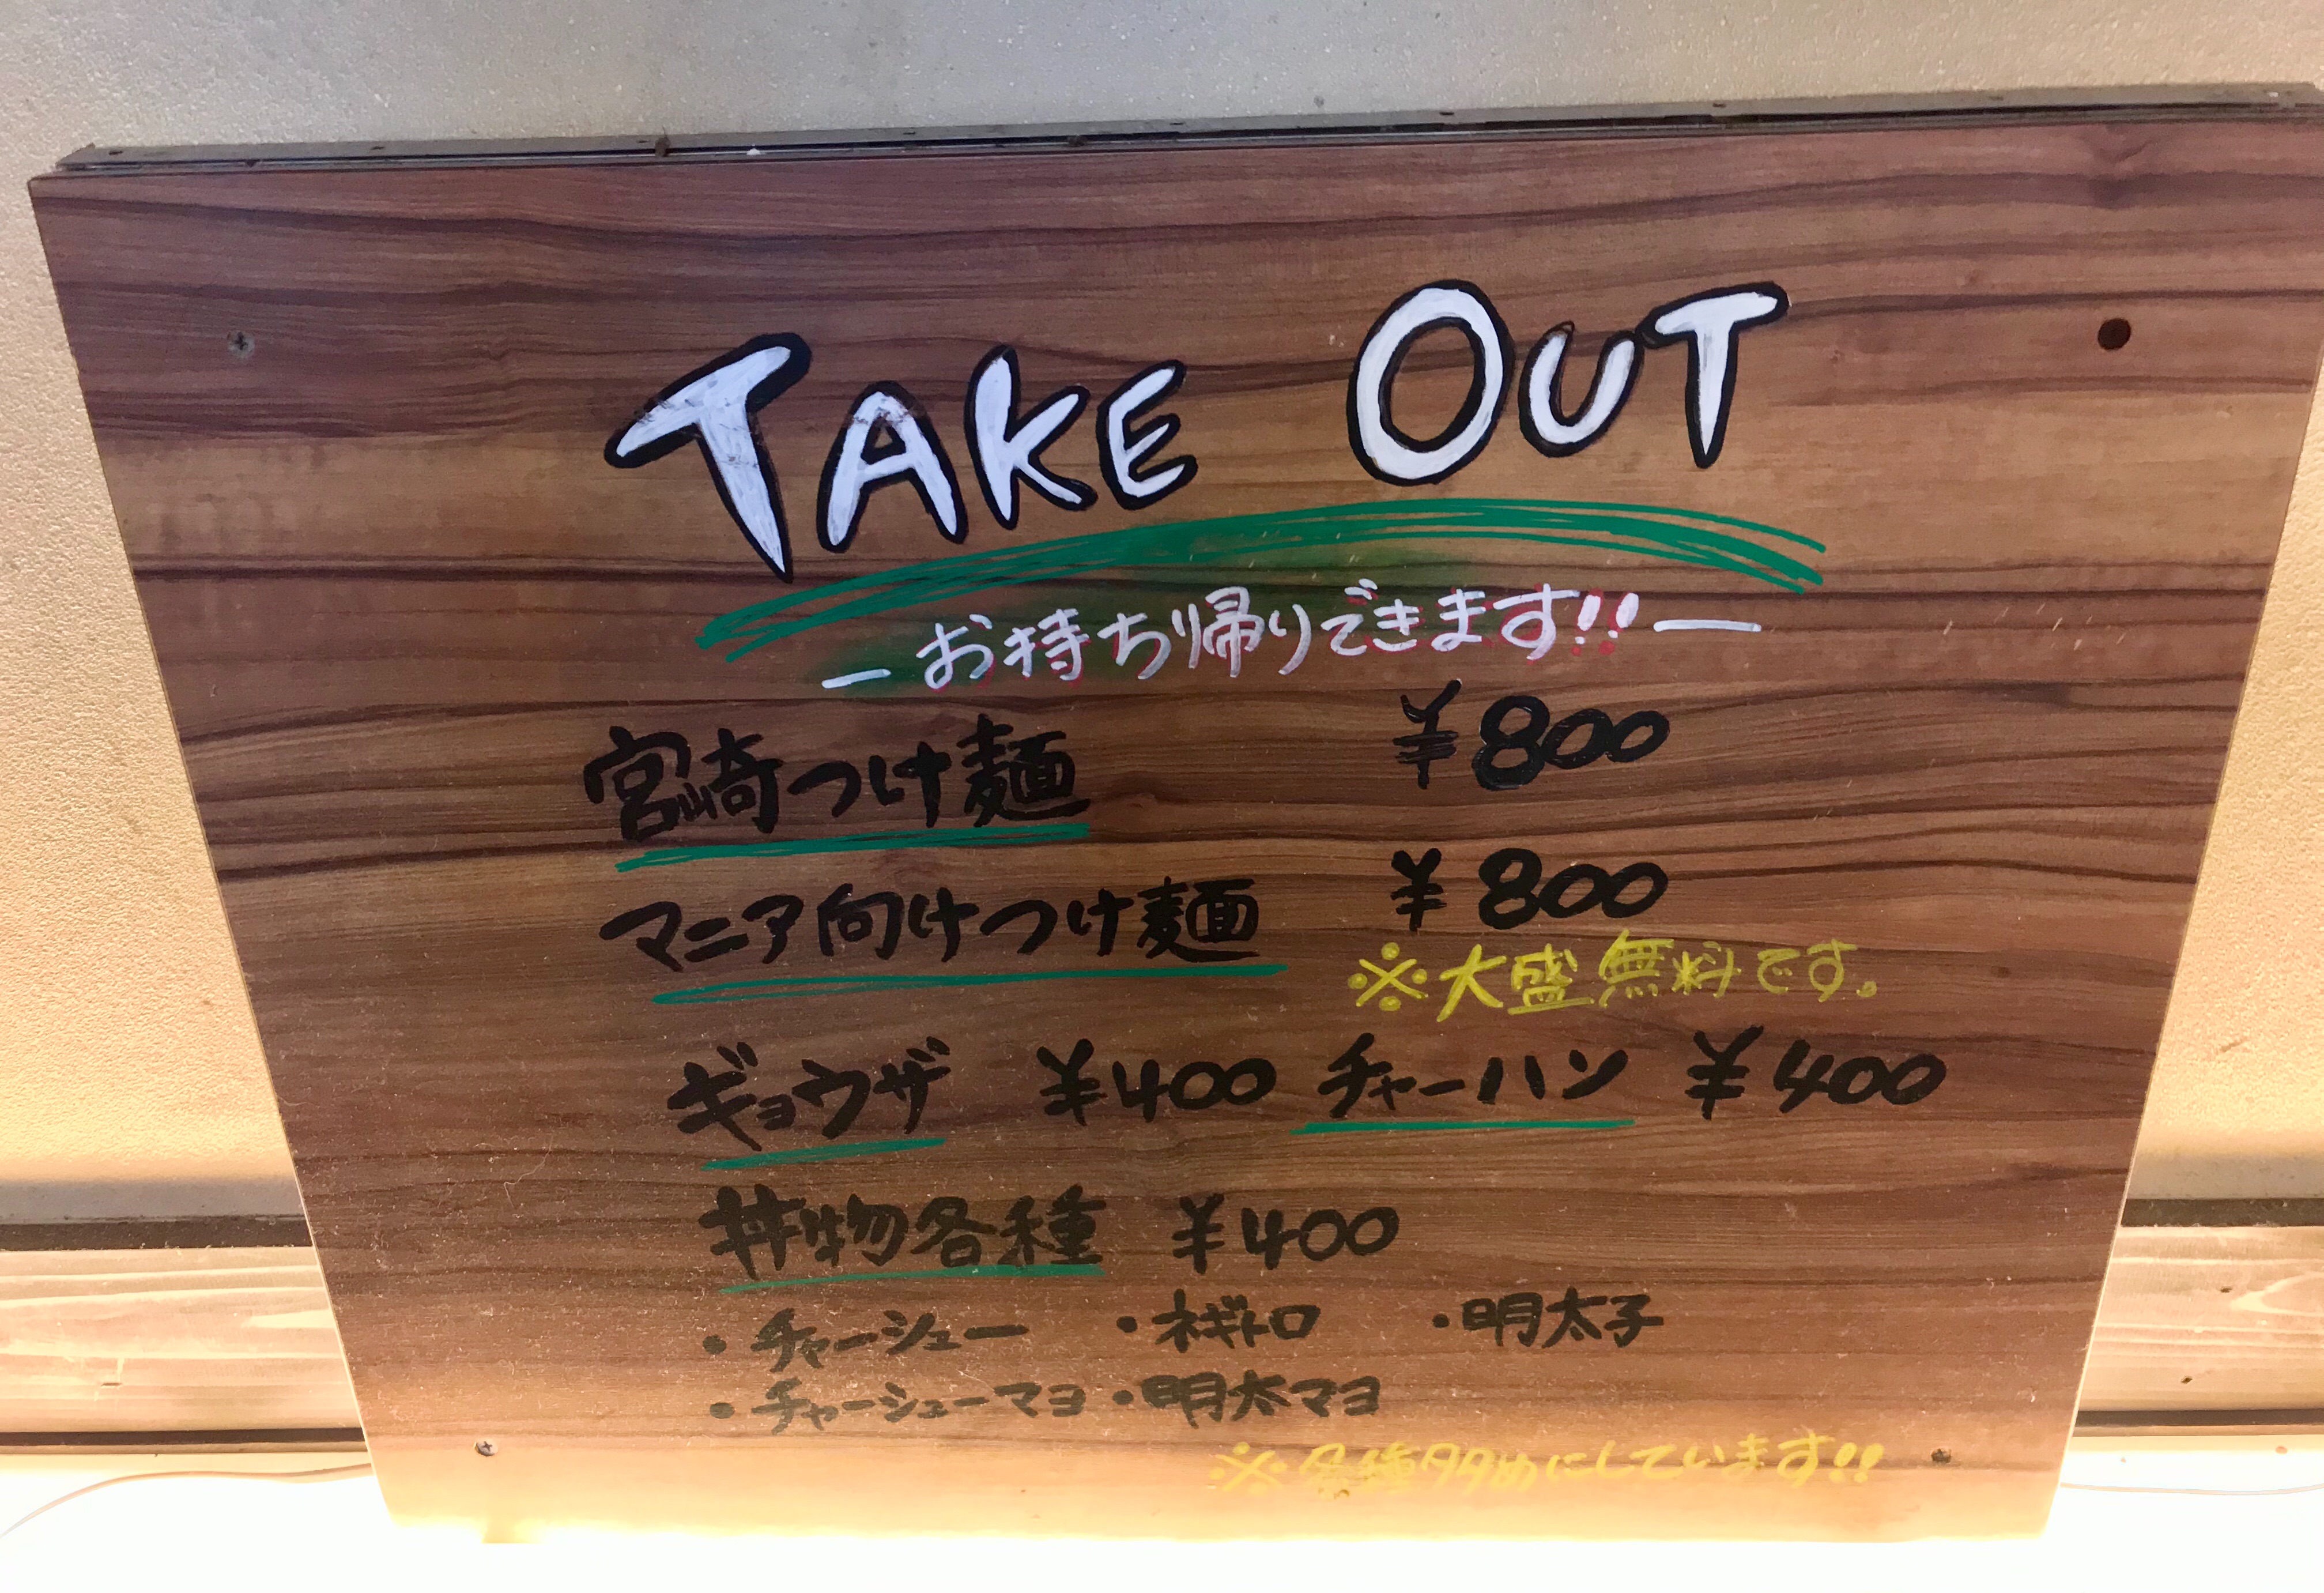 TAKE OUT
ーお持ち帰りできます!!ー
宮崎つけ麺 ¥800
マニア向けつけ麺 ¥800
※大盛無料です。
ギョウザ ¥400 チャーハン ¥400
丼物各種 ¥400
・チャーシュー ・ネギトロ ・明太子
・チャーシューマヨ ・明太マヨ
※各種多めにしています!!